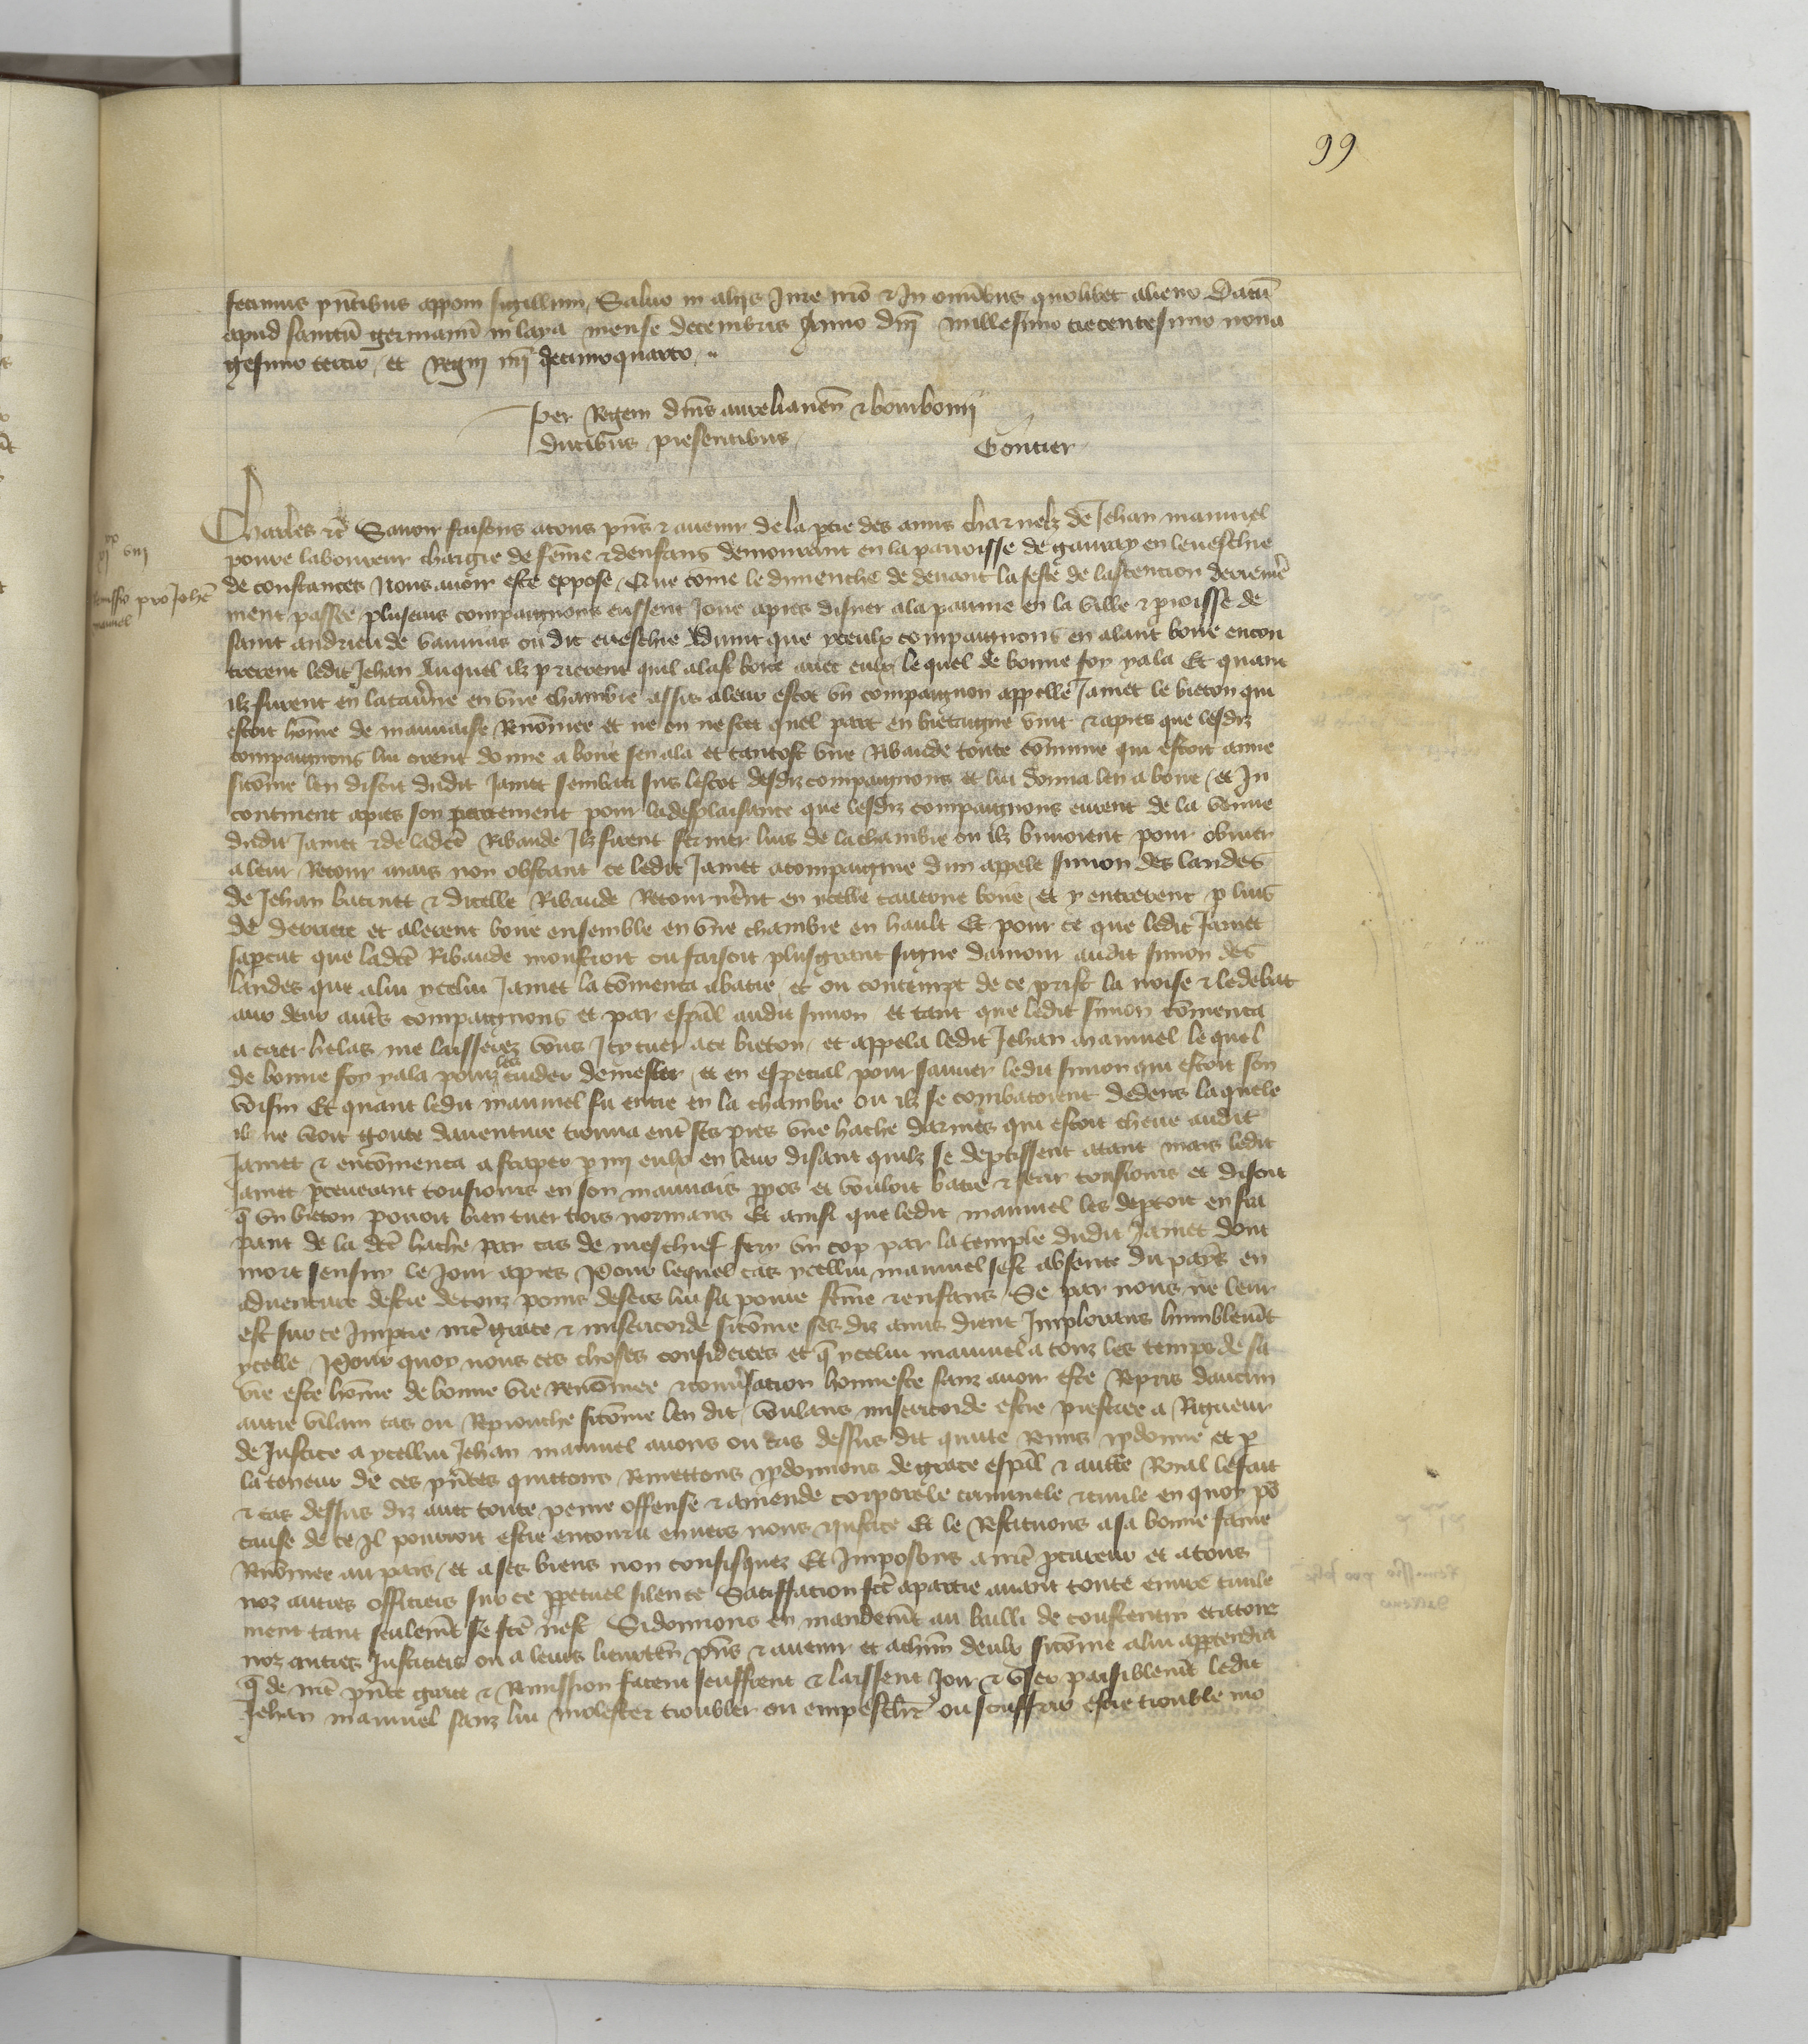 99
fecimus pñtibus apponi sigillum. Saluo in alijs Jure nr̃o & In omĩbus quolibet alieno Datũ
apud sanctũ germanũ in laya mense decembris Anno dñi millesimo trecentesimo nona
gesimo tercio, et Regni nr̃i decimoquarto ..
Per Regem dñis aurelianeñ & borbonii
ducibus presentibus
Gontier
xx
iiij viij
Remissio pro Johẽ
manuel
Charles &c̃ Sauoir faisons a tous pñs & auenir de la ptie des amis charnelz de Jehan manuel
poure laboureur chargie de fẽme & denfans demourant en la parroisse de gauray en leueschie
de constances Nous auoir este expose Que cõme le dimenche de deuant la feste de lascencion derreinẽ
ment passee pluseurs compaignons eussent Joue apres disner a la paume en la ville & proisse de
saint andrieu de vannas ou dit eueschie Aduint que yceulx compaignons en alant boire encon
trerent ledit Jehan Auquel ilz prierent quil alast boire auec eulx lequel de bonne foy y ala Et quant
ilz furent en la tauñe en vne chambre assis a leur escot vn compaignon appelle Jamet le breton qui
estoit hõme de mauuaise Renõmee et ne on ne scet quel part en bretaigne vint & apres que lesdiz
compaignons lui orent donne a boire sen ala et tantost vne Ribaude toute cõmune qui estoit amie
sicõme len disoit dudit Jamet sembati sus lescot desdiz compaignons et lui donna len a boire, et In
continent apres son partement pour la desplaisance que lesdiz compaignons eurent de la venue
dudit Jamet & de ladc̃e Ribaude Ilz firent fermer luis de la chambre ou ilz buuoient pour obuier
a leur Retour mais non obstant ce ledit Jamet acompaigne dun appele simon des landes
de Jehan batinet & dicelle Ribaude Retournerent en ycelle tauerne boire, et y entrerent p luis
de derriere et alerent boire ensemble en vne chambre en hault Et pour ce que ledit Jamet
sapcut que ladc̃e Ribaude monstroit ou faisoit plusgrant signe damour audit simon des
landes que a lui ycelui Jamet la cõmenca a batre, et ou contempt de ce prist la noise & le debat
aux deux autres compaignons et par esp̃al audit simon et tant que ledit simon cõmenca
a crier helas me laisserez vous Icy tuer a ce breton, et appela ledit Jehan manuel lequel
de bonne foy y ala pour les cuider demesler, et en especial pour sauuer ledit simon qui estoit son
voisin Et quant ledit manuel fu entre en la chambre ou ilz se combatoient dedens laquele
il ne veoit goute dauenture trouua entre ses piez vne hache darmes qui estoit cheue audit
Jamet & encõmenca a fraper p mi eulx en leur disant quilz se deptissent atant mais ledit
Jamet pseuerant tousiours en son mauuais ppos et vouloit batre & ferir tousiours et disoit
q̃ vn breton pouoit bien tuer trois normans Et ainsi que ledit manuel les deptoit en fra
pant de la dc̃e hache par cas de meschief feri vn cop par la temple dudit Jamet dont
mort sensuy le Jour apres Pour lequel cas ycellui manuel sest absente du pays en
aduenture destre de touz poins desers lui sa poure fẽme & enfans Se par nous ne leur
est sur ce Impartie nr̃e grace & misericorde sicõme ses diz amis dient Implorans humblemẽt
ycelle Pour quoy nous ces choses considerees et q̃ ycelui manuel a touz les temps de sa
vie este hõme de bonne vie Renõmee & conuersacion honneste sanz auoir este Repris daucun
autre vilain cas ou Reprouche sicõme len dit, voulans misericorde estre preferee a Rigueur
de Justice a ycellui Jehan manuel auons ou cas dessus dit quitte Remis & pdonne et p
la teneur de ces pñtes quittons Remettons & pdonnons de grace esp̃al & auctẽ Roial le fait
& cas dessus diz auec toute peine offense & amende corporele criminele & ciuile en quoy po
cause de ce Il pourroit estre encouru enuers nous & Justice Et le Restituons a sa bonne fame
Renõmee au pais, et a ses biens non confisquez Et Imposons a nr̃e pcureur et a touz
noz autres officiers sur ce ppetuel silence Satisfacion fc̃e a partie auant toute euure ciuile
ment tant seulemẽt se fc̃e nest Si donnons en mandemẽt au bailli de coustentin et a touz
noz autres Justiciers ou a leurs lieuteñ pñs & auenir et a chũn deulx sicõme a lui appartendra
q̃ de nr̃e pñte grace & Remission facent seuffrent & laissent Joir & vser paisiblemẽt ledit
Jehan manuel sanz lui molester troubler ou empeschr̃ ou souffrir estre trouble mo